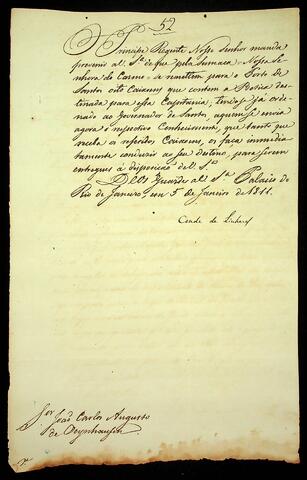 52
O Principe Regente Nosso Senhor manda
prevenir a V. S.ª de que pela Sumaca = Nossa Se-
nhora do Carmo = se remettem para o Porto de
Santos oito Caixoens que contem a Botica des-
tinada para essa Capitania, tendo-se já orde-
nado ao Governador de Santos, a quem se envia
agora o respectivo Conhecimento, que tanto que
receba os referidos Caixoens, os faça immedia-
tamente conduzir ao seu destino, para serem
entregues à disposição de V. S.ª
Deos Guarde a V. S.ª Palacio do
Rio de Janeiro em 5 de Janeiro de 1811.
Conde de Linhares
Sor João Carlos Augusto
de Oeynhausen